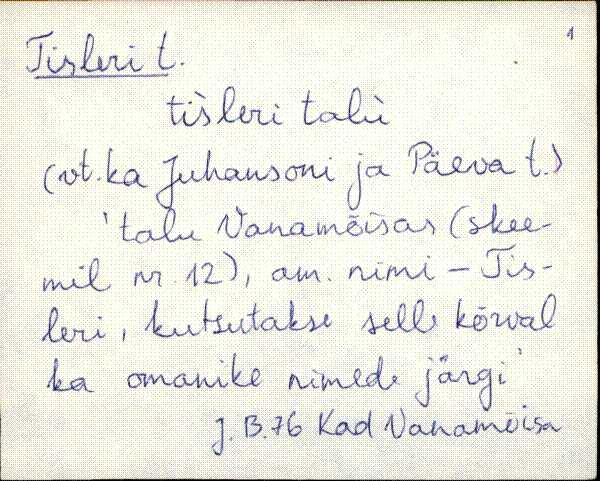 1
Tisleri t.
tìsleri talu
(vt. ka Juhansoni ja Päeva t.)
'talu Vanamõisas (skee-
mil nr. 12), am. nimi – Tis-
leri, kutsutakse selle kõrval
ka omanike nimede järgi'
J. B. 76 Kad Vanamõisa